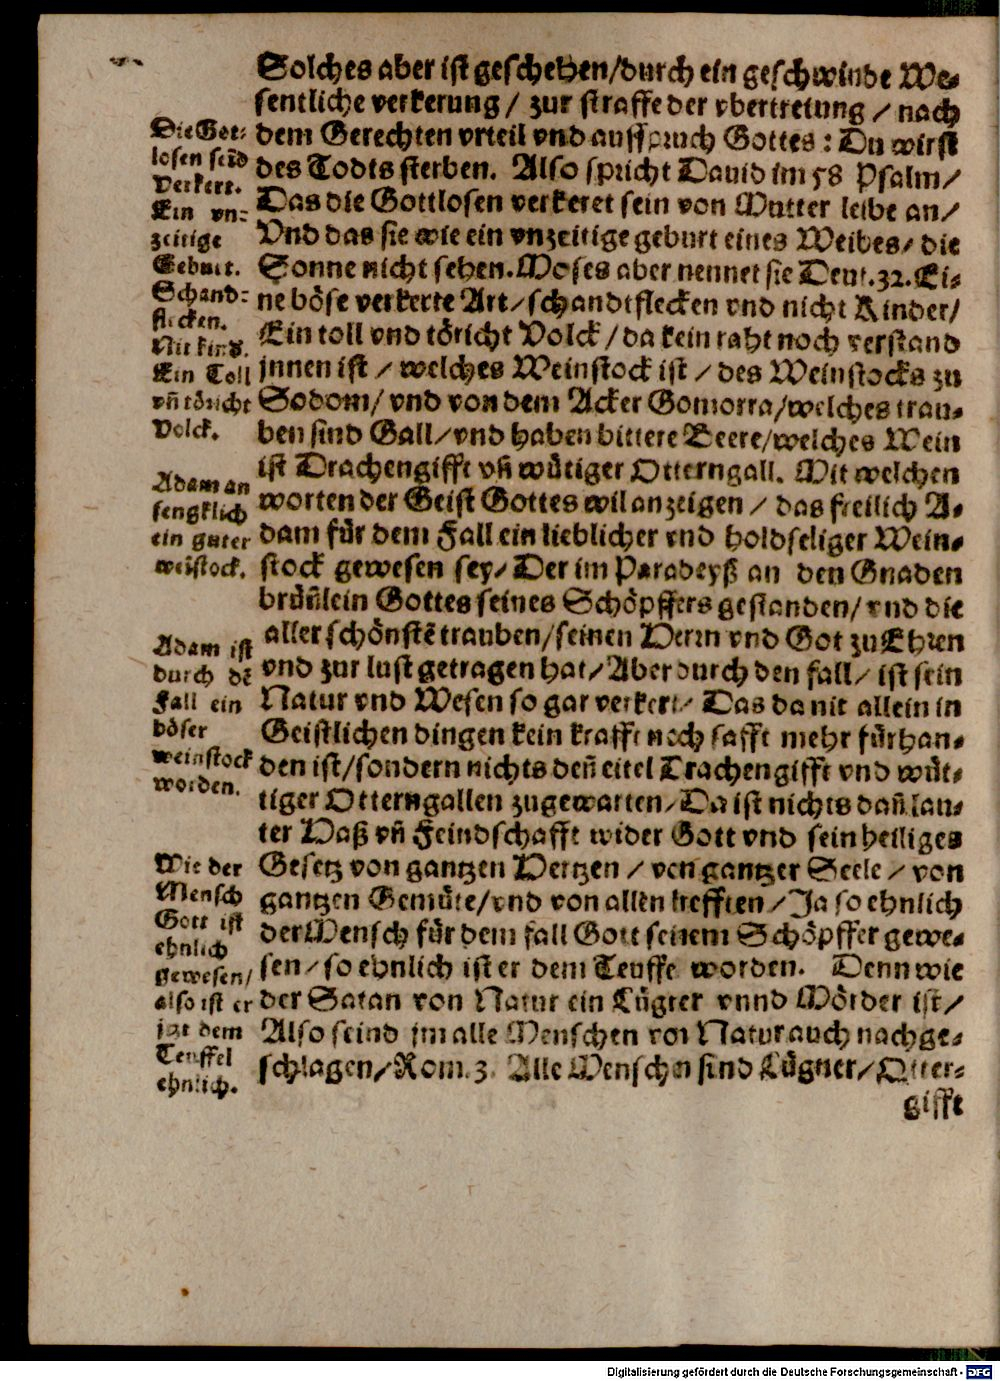 Solches aber ist geschehen/durch ein geschwinde We-
sentliche verkerung / zur straffe der vbertretung / nach
dem Gerechten vrteil vnd ausspruch Gottes: Du wirst
des Todts sterben. Also spricht Dauid im 58 Psalm/
Das die Gottlosen verkeret sein von Mutter leibe an/
Vnd das sie wie ein vnzeitige geburt eines Weibes/ die
Sonne nicht sehen. Moses aber nennet sie Deut. 32. Ei-
ne böse verkerte Art/schandtflecken vnd nicht Kinder/
Ein toll vnd töricht Volck/da kein raht noch verstand
jnnen ist / welches Weinstock ist / des Weinstocks zu
Sodom/ vnd von dem Acker Gomorra/welches trau-
ben sind Gall/vnd haben bittere Beere/welches Wein
ist Drachengifft vñ wütiger Otterngall. Mit welchen
worten der Geist Gottes wil anzeigen / das freilich A-
dam für dem Fall ein lieblicher vnd holdseliger Wein-
stock gewesen sey/ Der im Paradeyß an den Gnaden
brünlein Gottes seines Schöpffers gestanden/ vnd die
aller schönstē trauben/seinen Herrn vnd Got zu Ehren
vnd zur lust getragen hat/ Aber durch den fall/ ist sein
Natur vnd Wesen so gar verkert/ Das da nit allein in
Geistlichen dingen kein krafft noch safft mehr fürhan-
den ist/sondern nichts deñ eitel Trachengifft vnd wüt-
tiger Otterngallen zugewarten/Da ist nichts dañ lau-
ter Haß vñ Feindschafft wider Gott vnd sein heiliges
Gesetz von gantzen Hertzen / von gantzer Seele / von
gantzen Gemüte/vnd von allen krefften/Ja so ehnlich
der Mensch für dem fall Gott seinem Schöpffer gewe-
sen/so ehnlich ist er dem Teuffel worden. Denn wie
der Satan von Natur ein Lügner vnnd Mörder ist/
Also seind jm alle Menschen von Natur auch nachge-
schlagen/Rom. 3. Alle Menschen sind Lügner/Otter-
gifft
Die Got-
losen seid
Verkert.
Ein vn-
zeitige
Geburt.
Schand-
flecken.
Nit kind.
Ein Toll
vñ töricht
Volck.
Adam an
fengklich
ein guter
weistock.
Adam ist
durch dē
Fall ein
böser
weinstock
worden.
Wie der
Mensch
Gott ist
ehnlich
gewesen/
also ist er
jzt dem
Teuffel
ehnlich.
Digitalisierung gefördert durch die Deutsche Forschungsgemeinschaft - DFG